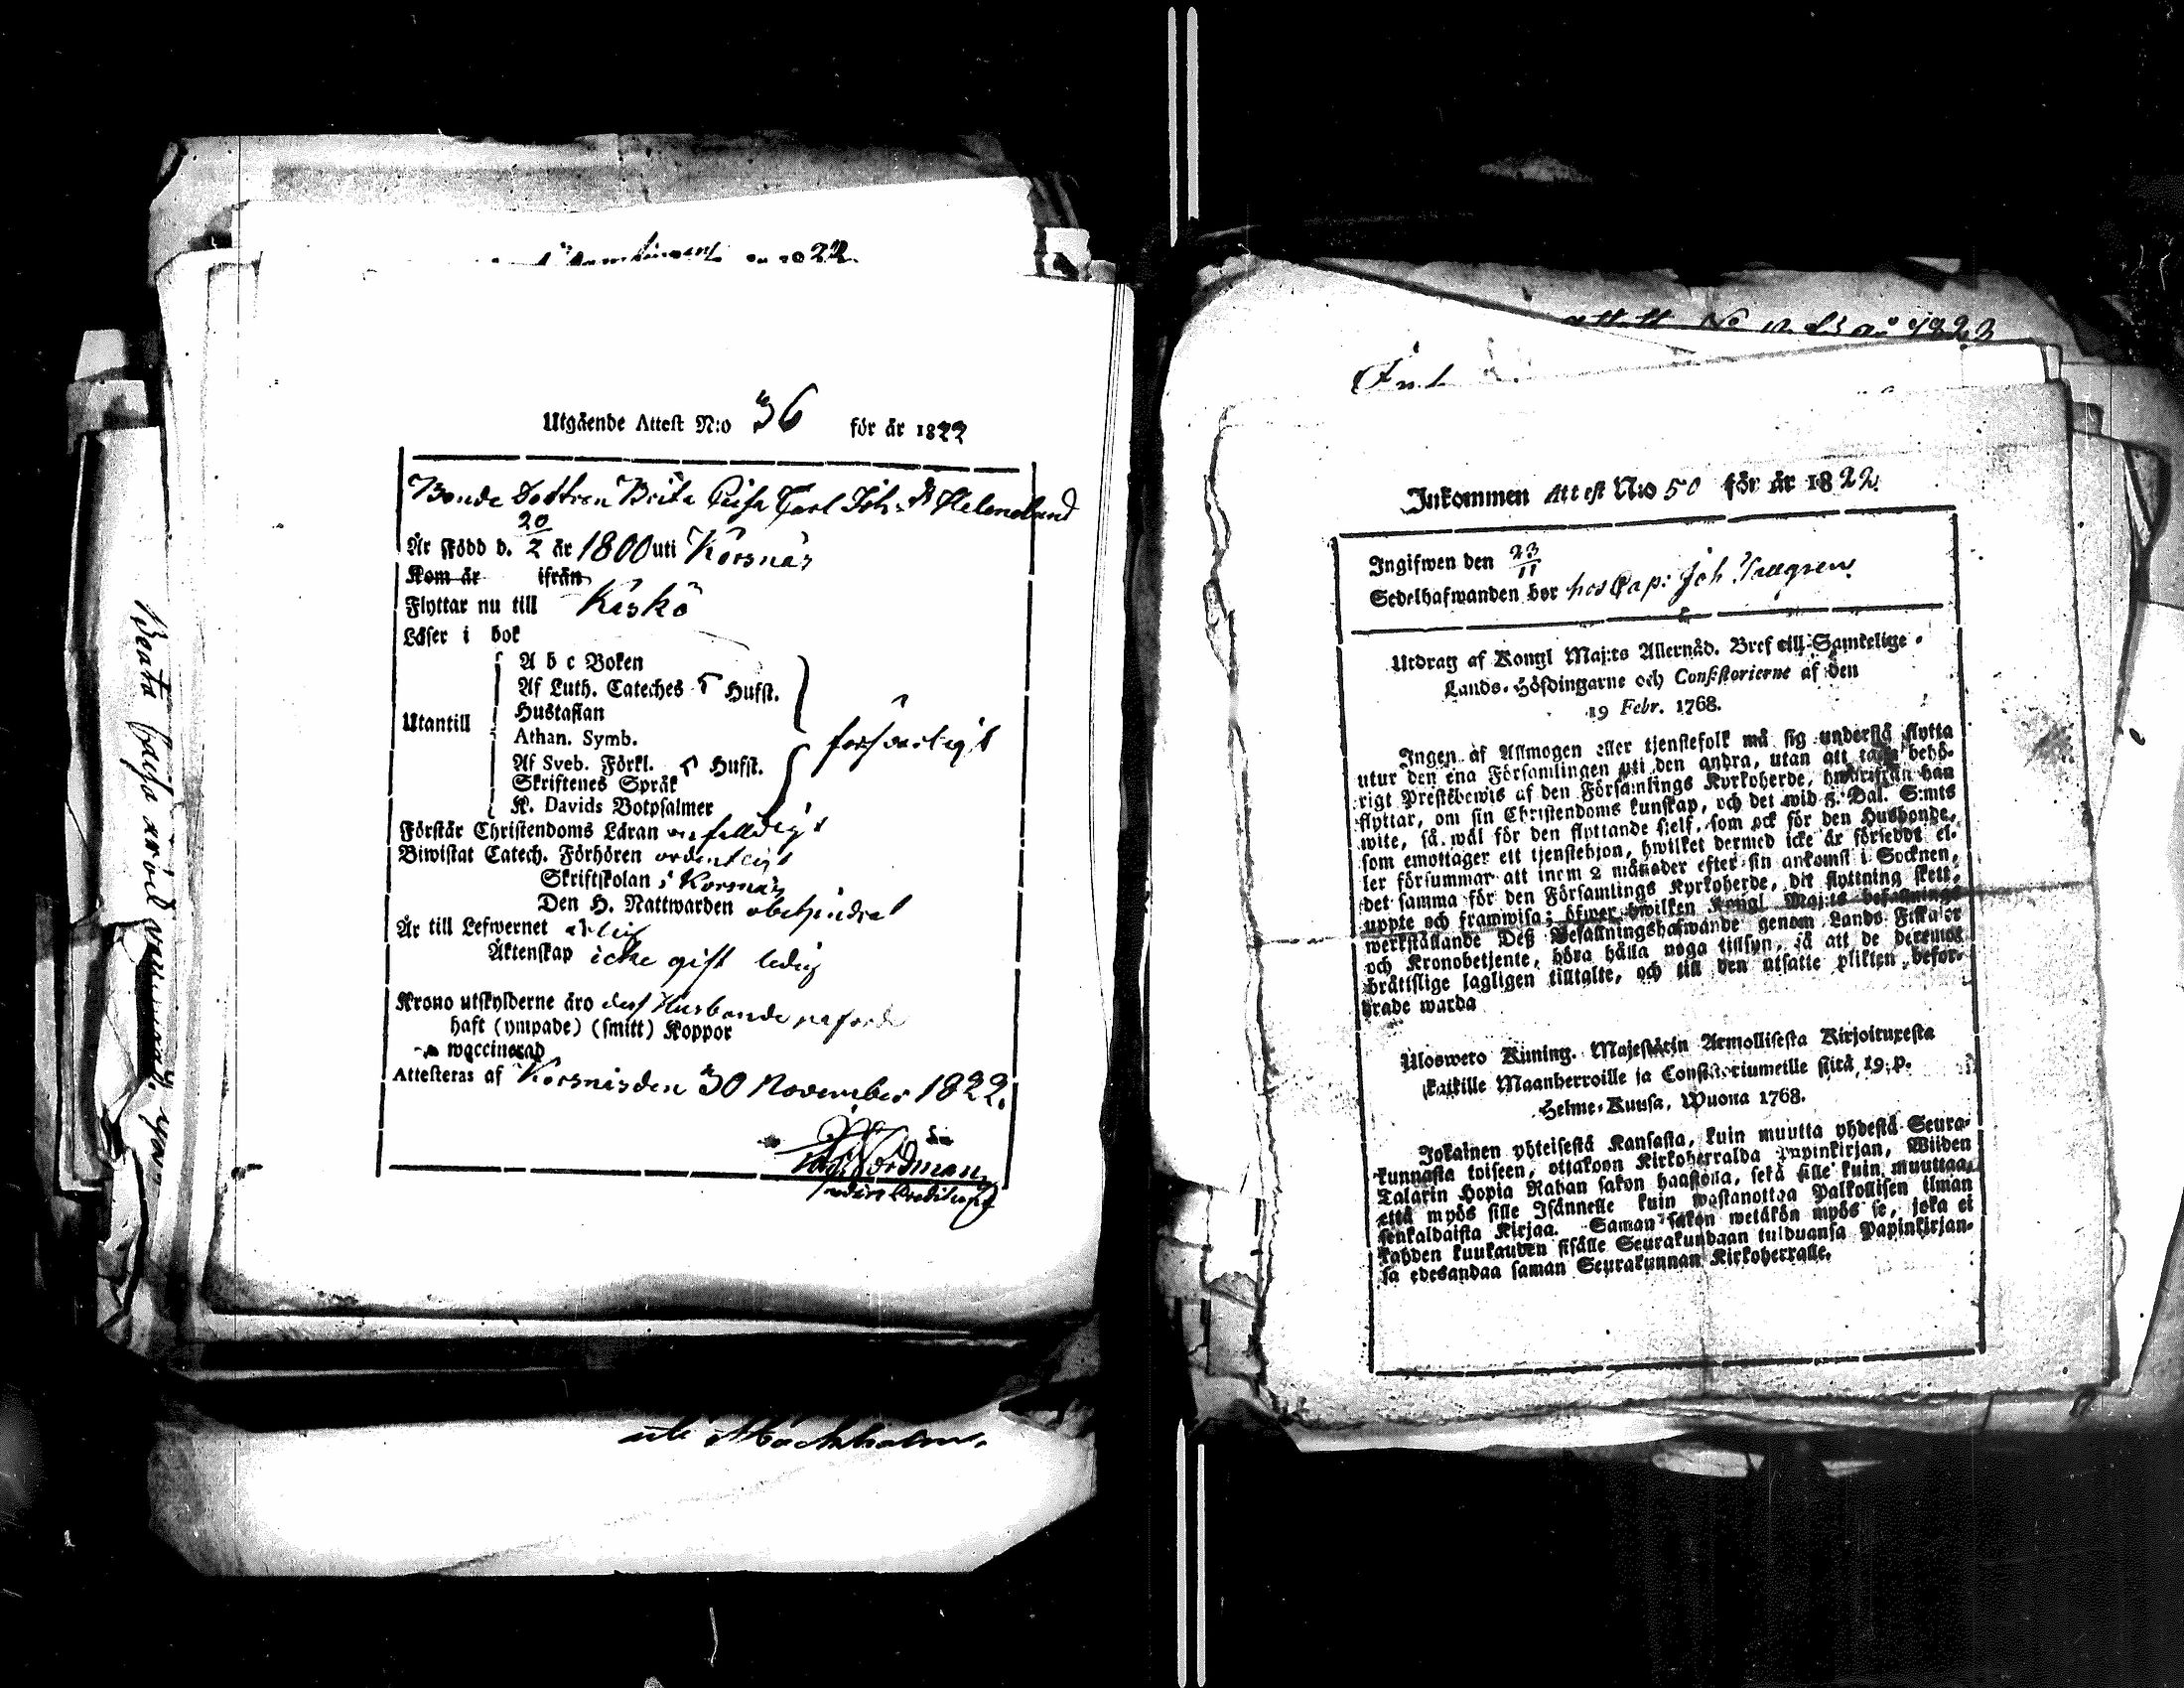 1822.
Utgående Attest N:o 36 för år 1822
Bonde Dottren Brita Caisa Carl Joh: Dr Helenelund
Är född d. 20/2 år 1800 uti Korsnäs
Kom år ifrån
Flyttar nu till Kaskö
Läser i bok
Utantill
A b c Boken
Af Luth. Cateches 5 Hufst.
Hustaflan
Athan. Symb.
Af Sveb. Förkl. 5 Hufst.
Skriftenes Språk
K. Davids Botpsalmer
försvarligt
Förstår Christendoms Läran enfaldigt
Biwistat Catech. Förhören ordentligt
Skriftskolan i Korsnäs
Den H. Nattwarden obehindrat
Är till Lefwernet ärlig
Äktenskap icke gift ledig
Krono utskylderne äro dess Husbonde påförde
haft (ympade) (smitt) Koppor
waccinerad
Attesteras af Korsnäs den 30 November 1822.
Nordman
Beata Cajsa
ute Stockholm.
attest No 1823
Inkommen Attest N:o 50 för år 1822.
Ingifwen den 23/11
Sedelhafwanden bor hos Cap: Joh
Utdrag af Kongl Maj:ts Allernåd. Bref till Samtelige
Lands-Höfdingarne och Consistorierne af den
19 Febr. 1768.
Ingen af Allmogen eller tjenstefolk må sig understå flytta
utur den ena Församlingen uti den andra, utan att taga behö-
rigt Prestebewis af den Församlings Kyrkoherde, hwarifrån han
flyttar, om sin Christendoms kunskap, och det wid 5. Dal. S:mts
wite, så wäl för den flyttande sielf, som ock för den Husbonde,
som emottager ett tjenstehjon, hwilket dermed icke är förseddt el-
ler försummar att inom 2 månader efter sin ankomst i Socknen,
det samma för den Församlings Kyrkoherde, dit flyttning skett,
uppte och framwisa; öfwer hwilken Kongl Maj:ts befallnings
werkställande Deß Befallningshafwande genom Lands Fiskaler
och Kronobetjente, böra hålla noga tillsyn, så att de deremot
bråttslige lagligen tilltalte, och till den utsatte plikten befor-
drade warda
Ulosweto Kuning. Majestätin Armollisesta Kirjoituxesta
kaikille Maanherroille ja Consistoriumeille siitä 19. p.
Helme-Kuusa, Wuona 1768.
Jokainen yhteisestä Kansasta, kuin muutta yhdestä Seura-
kunnasta toiseen, ottakoon Kirkoherralda Papinkirjan, Wiiden
Talarin Hopia Rahan sakon haastolla, sekä sille kuin muuttaa,
että myös sille Isännelle kuin wastanottaa Palkollisen ilman
senkaldaista Kirjaa. Saman sakon wetäkön myös se, joka ei
kahden kuukauden sisälle Seurakundaan tulduansa Papinkirjan-
sa edesandaa saman Seurakunnan Kirkoherralle.